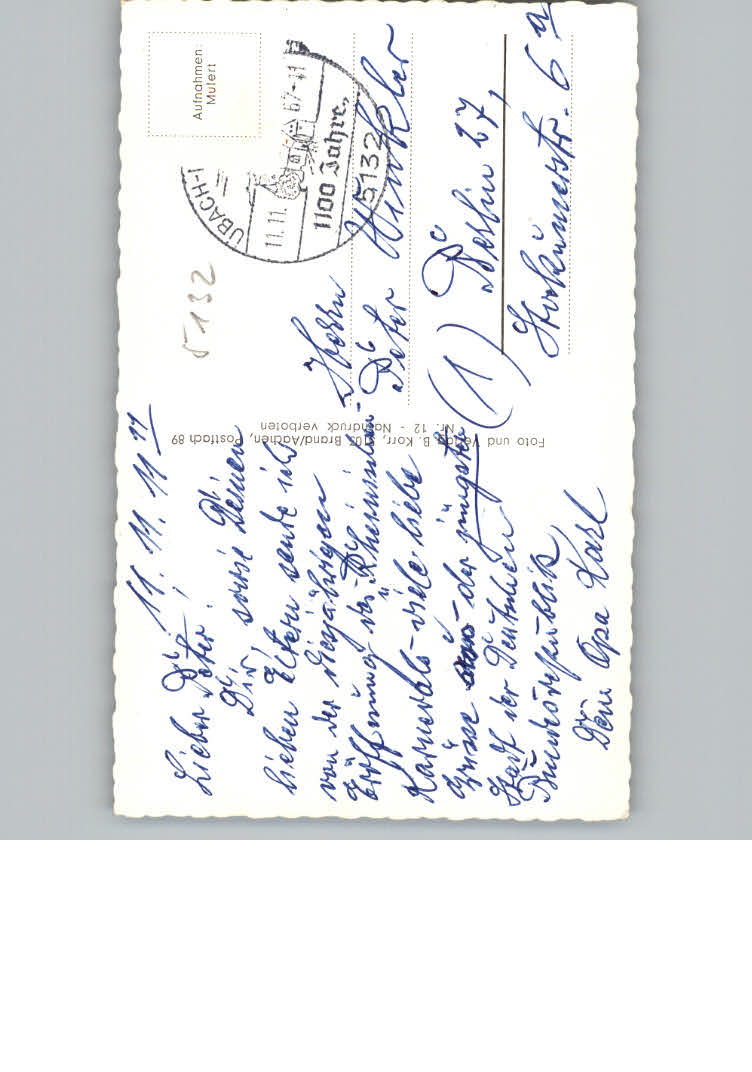 11. 11. 11 11
Lieber Peter!
Dir, sowie Deinen
lieben Eltern sende ich
von der diesjährigen
Eröffnung des Rheinischen
Karnevals - viele liebe
Grüsse - der jüngsten
Stadt der Deutschen
Bundesrepublik,
Dein Opa Karl
Foto und Verlag B. Korr, 5105 Brand/Aachen, Postfach 89
Nr. 12 - Nachdruck verboten
5132
Aufnahmen:
Mufert
ÜBACH-
11.11.67-11
1100 Jahre
5132
Herrn
Peter Winkler
(1) Berlin 27,
6a